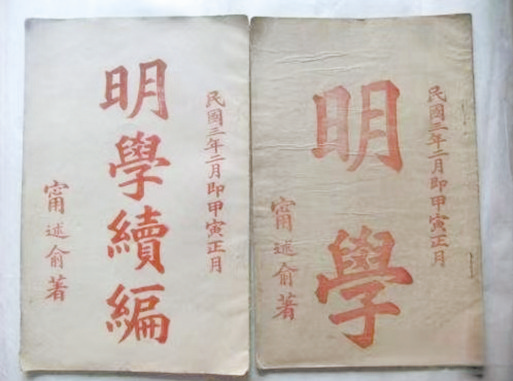 民國三年二月即甲寅正月
明學
甯述俞著
民國三年二月即甲寅正月
明學續編
甯述俞著